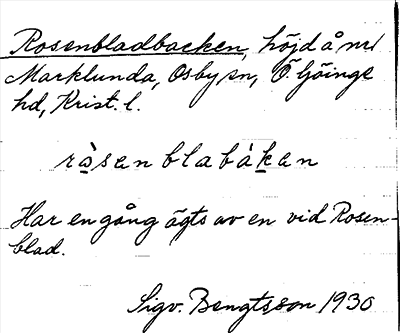 Rosenbladbacken, höjd å nr 1
Marklunda, Osby sn, Ö. Göinge
hd, Krist. l.
ròsenblabàkan
Har en gång ägts av en vid Rosen-
blad.
Sigv. Bengtsson 1930